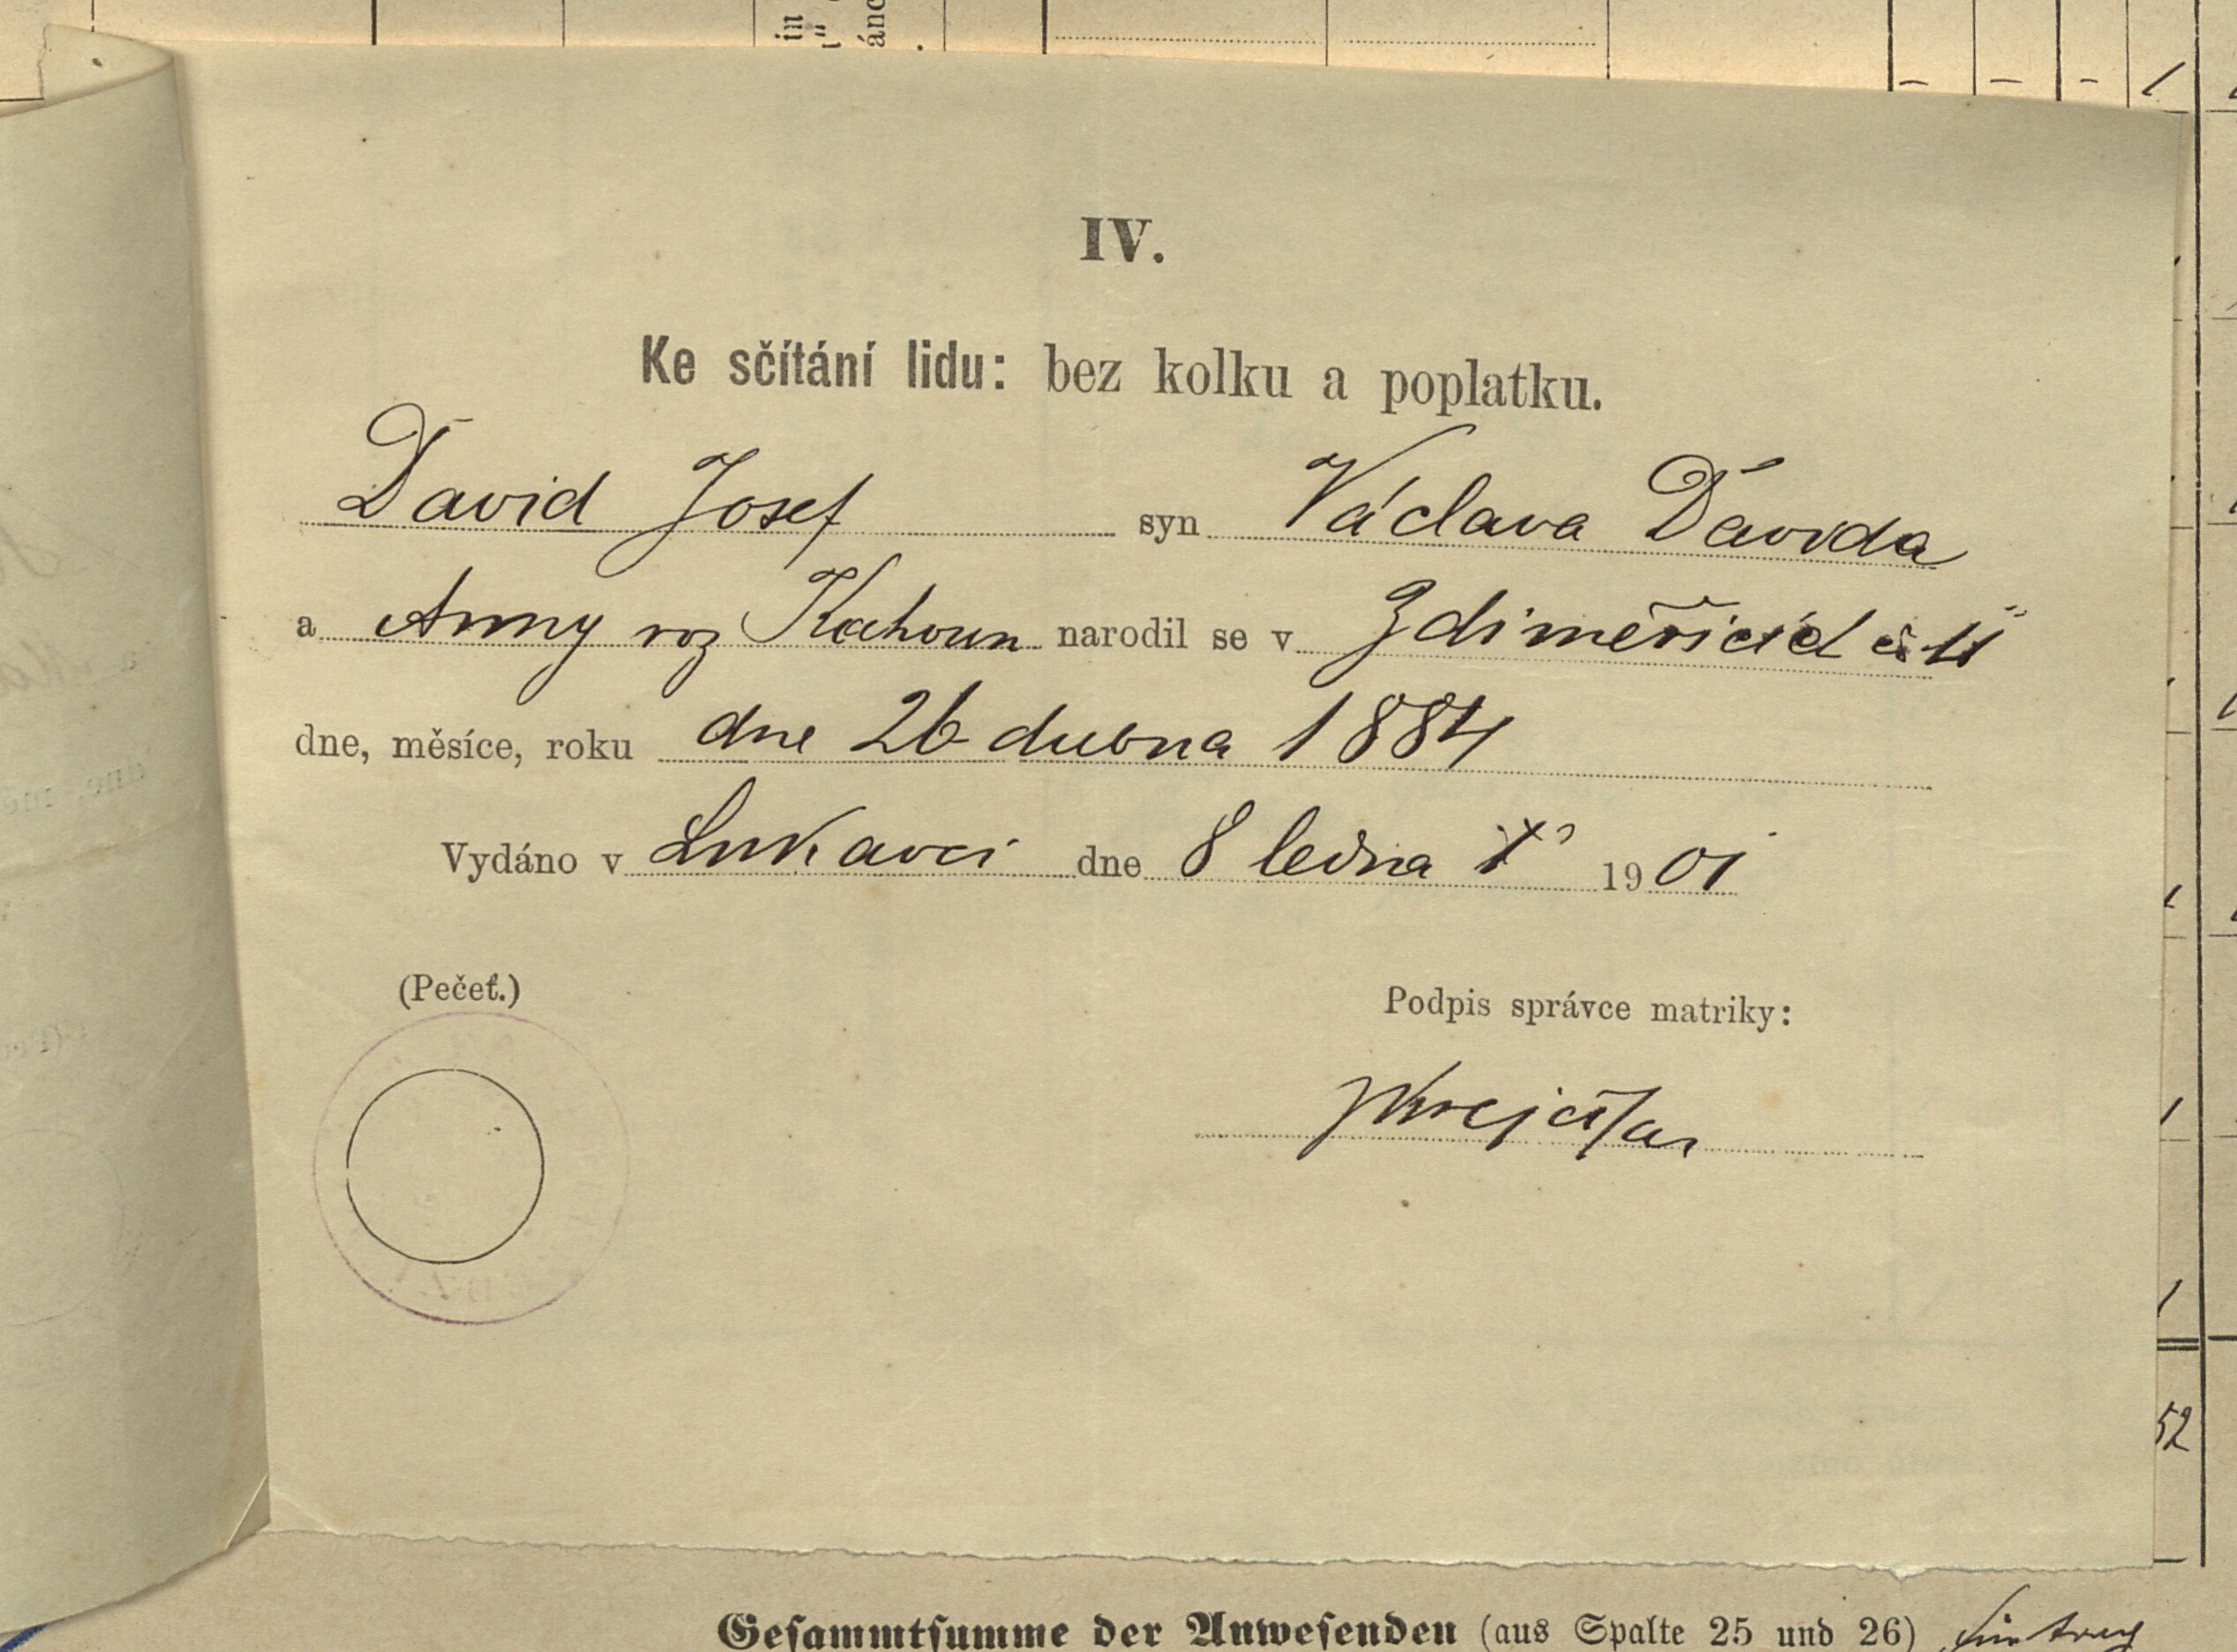 IV.
Ke sčítání lidu: bez kolku a poplatku.
David Josef syn Václava Davida
a Anny roz Kahoun narodil se v Zdiměřicích č 11
dne, měsíce, roku dne 26 dubna 1884
Vydáno v Lukavci dne 8 ledna 1901
(Pečeť.)
Podpis správce matriky:
52
Gesammtsumme der Anwesenden (aus Spalte 25 und 26)